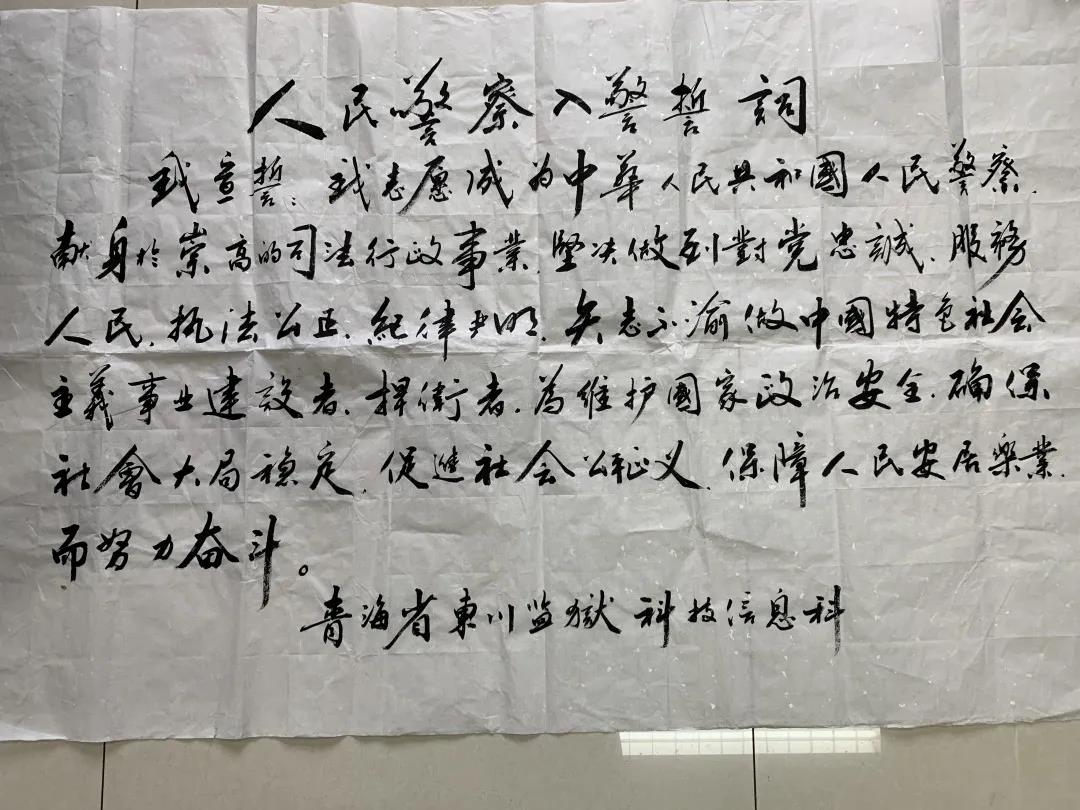 人民警察入警誓詞
我宣誓：我志愿成为中華人民共和國人民警察，
献身於崇高的司法行政事業，堅决做到對党忠誠、服務
人民、执法公正、紀律严明，矢志不渝做中國特色社会
主義事业建設者、捍衛者，為维护國家政治安全、确保
社會大局稳定、促進社会公平正义、保障人民安居樂業，
而努力奋斗。
青海省東川监獄科技信息科